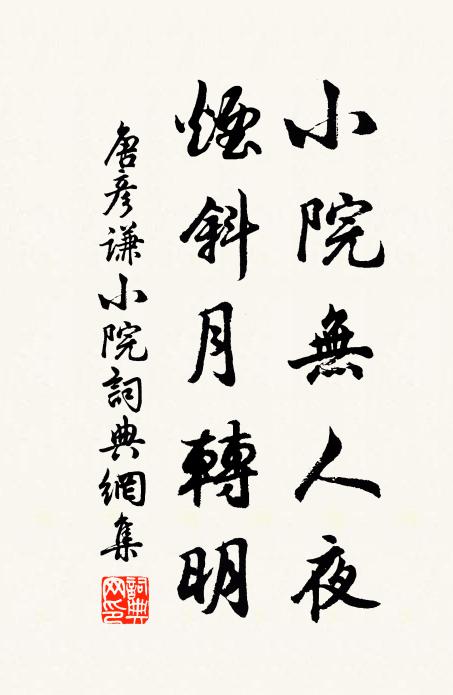 小院無人夜
煙斜月轉明
唐彥謙小院詞典網集
詞典網印